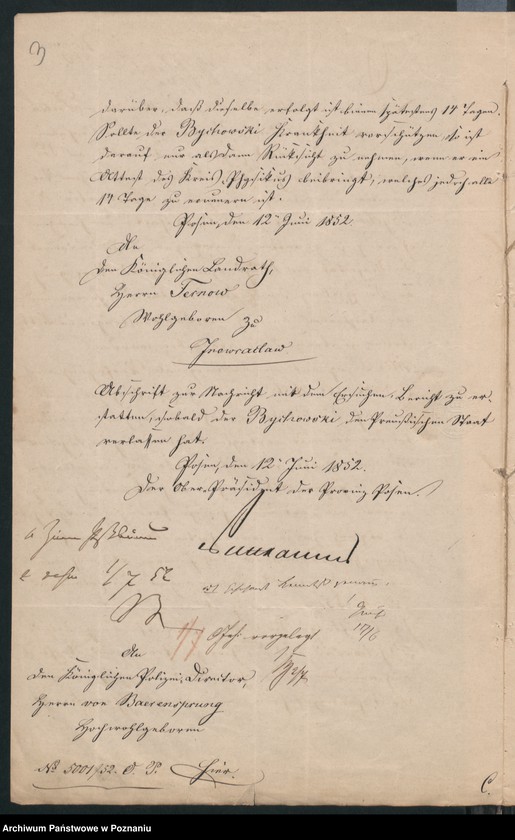 3
darüber, daß dieselbe erfolgt ist binnen spätestens 14 Tagen.
Sollte der Bychowski Krankheit vorschützen so ist
darauf nur alsdann Rücksicht zu nehmen, wenn er ein
Attest des Kreis-Physikus beibringt, welches jedoch alle
14 Tage zu erneuern ist.
Posen, den 12ten Juni 1852.
An
den Königlichen Landrath,
Herrn Fernow
Wohlgeboren zu
Inowraclaw
Abschrift zur Nachricht mit dem Ersuchen, Bericht zu er-
statten, sobald der Bychowski den Preußischen Staat
verlassen hat.
Posen, den 12ten Juni 1852.
Der Ober-Präsident der Provinz Posen.
1/7 52
17/6
1/7 vorgelegt
An
den Königlichen Polizei-Director,
Herrn von Baerensprung
Hochwohlgeboren
No 5001/52. O. P. Hier.
C.
Archiwum Państwowe w Poznaniu